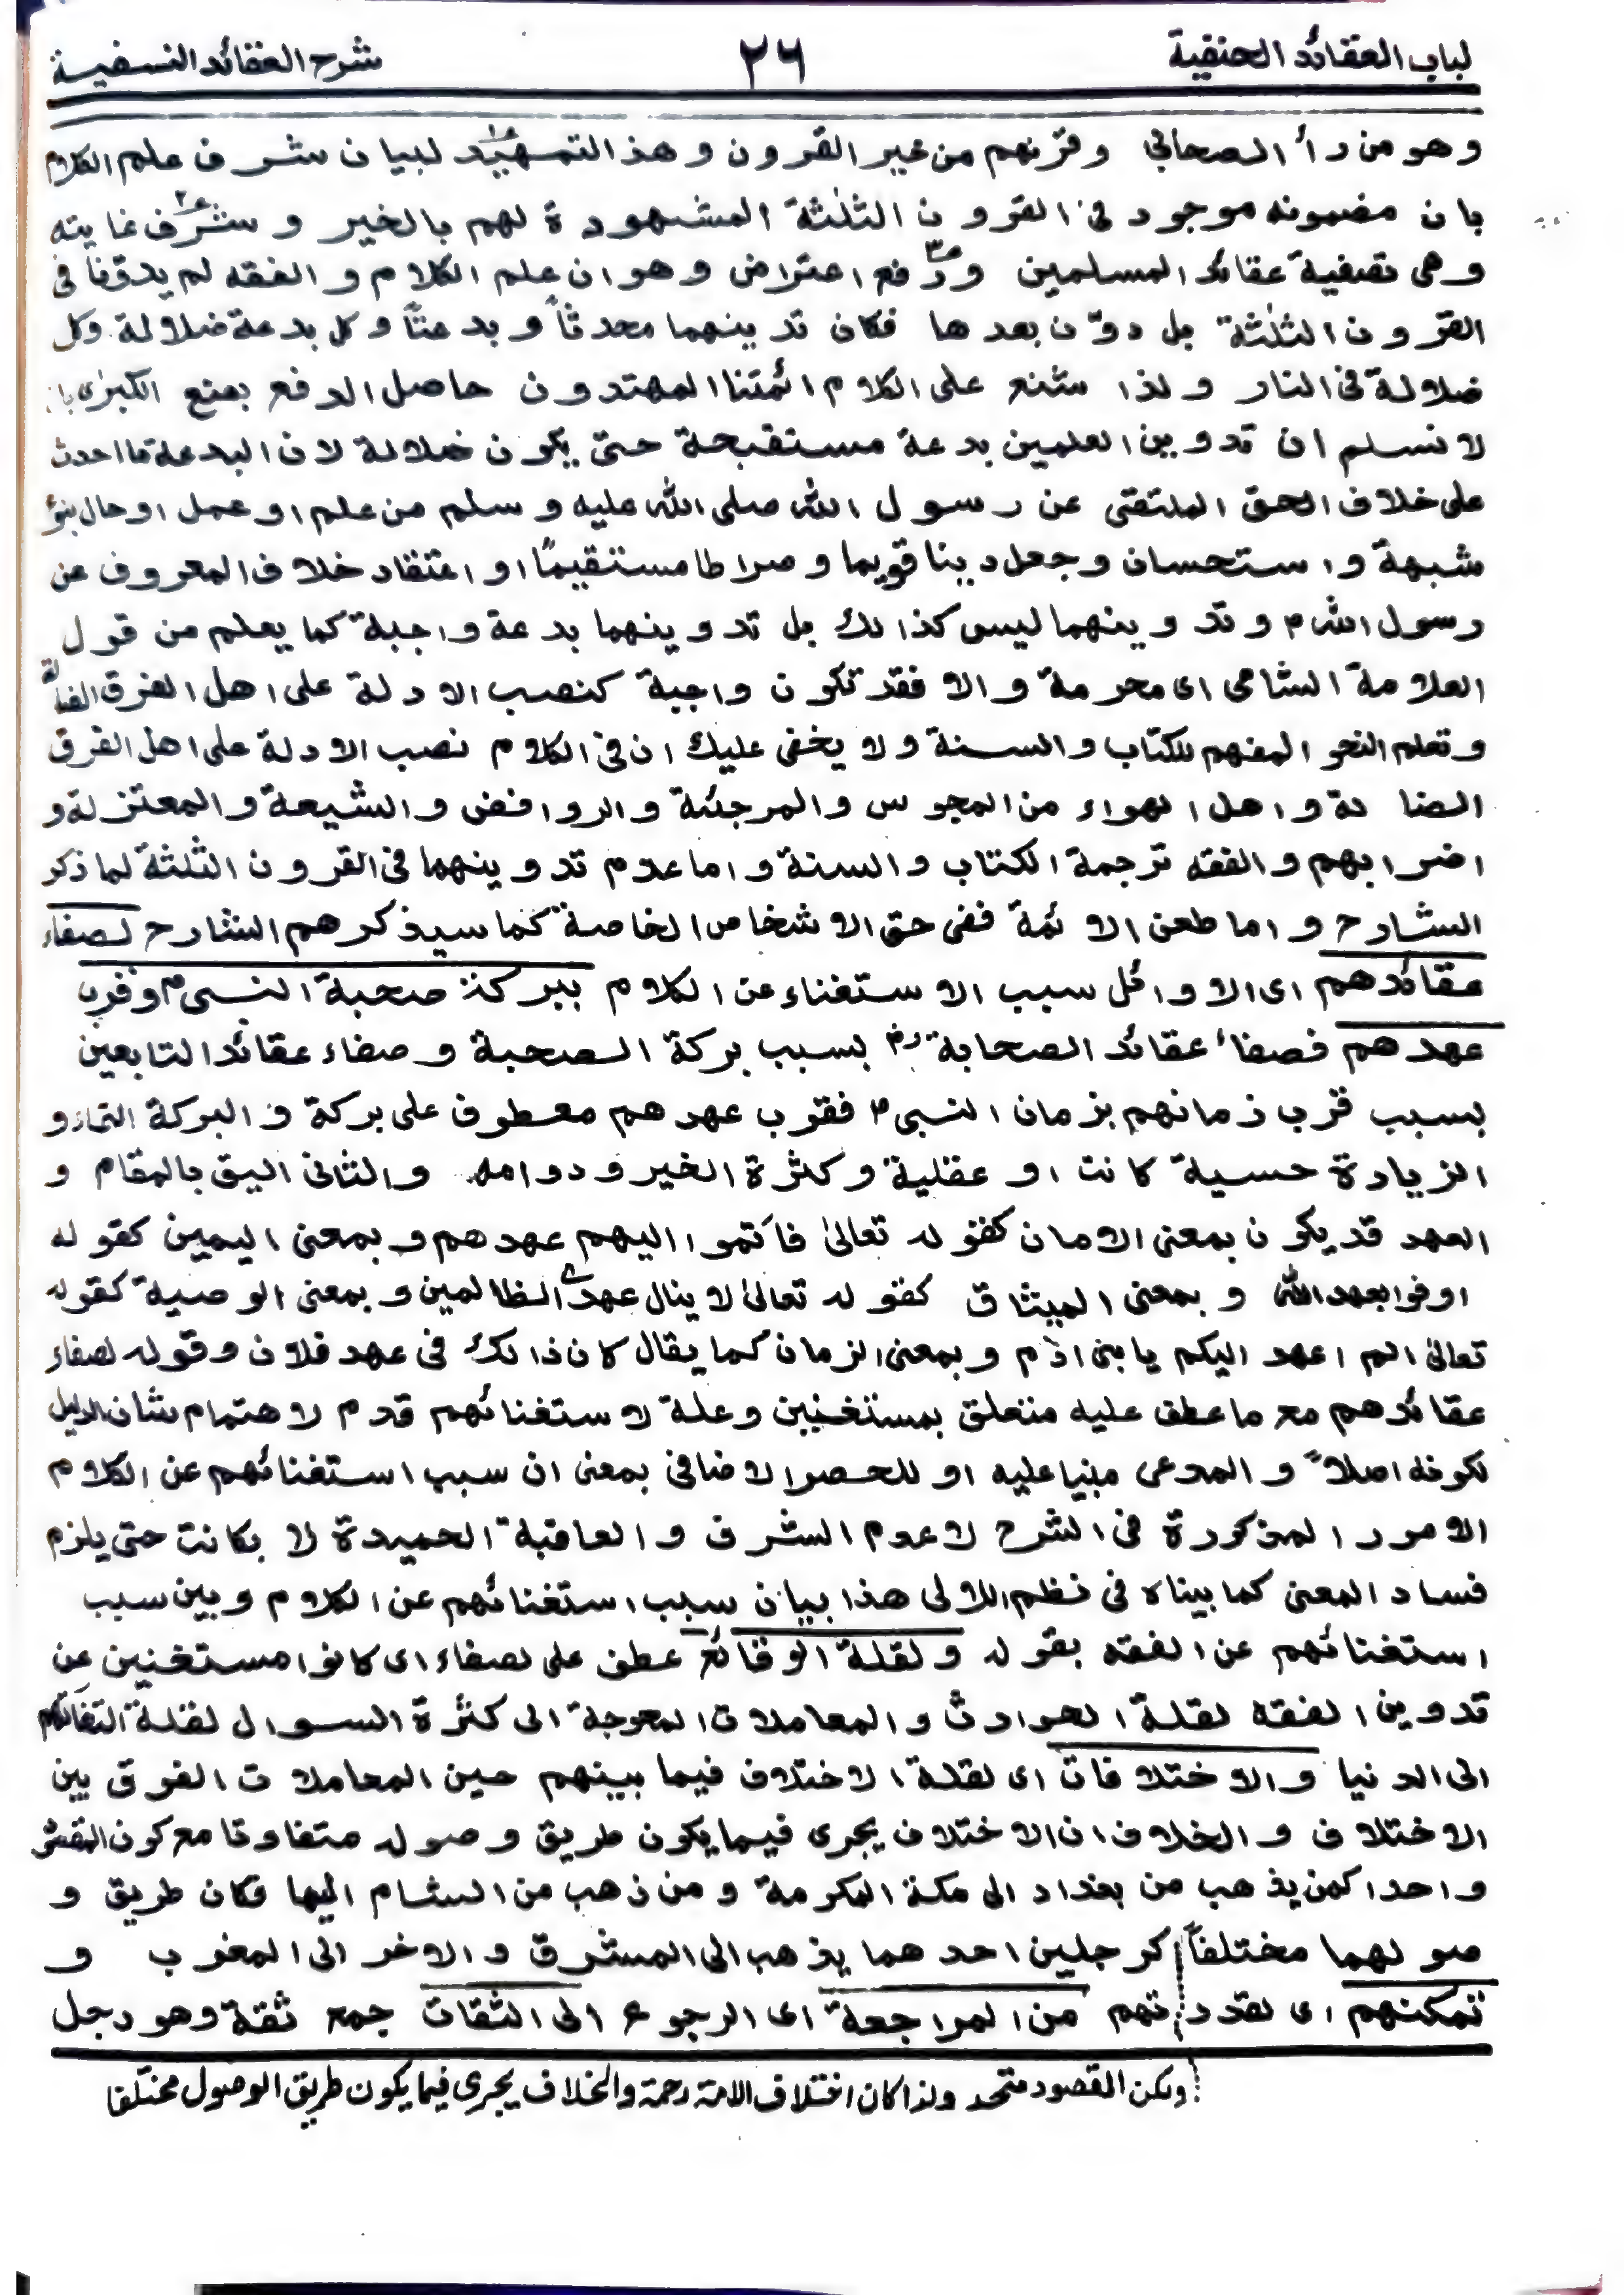 لباب العقائد الحنفية ٢٦ شرح العقائد النسفية
وهو من رأ الصحابي وقرنهم من خير القرون وهذ التمهيد لبيان شرف علم الكلام
بان مضمونه موجود في القرون الثلثة المشهودة لهم بالخير وشرف غايته
وهى تصفية عقائد المسلمين ودفع اعتراض وهو ان علم الكلام والفقه لم يدوّنا فى
القرون الثلثة بل دوّن بعدها فكان تدوينهما محدثاً وبدعتاً وكل بدعة ضلالة وكل
ضلالة فى النار ولذا شنع على الكلام ائمتنا المهتدون حاصل الدفع بمنع الكبرٰى با
لا نسلم ان تدوين العلمين بدعة مستقبحة حتى يكون ضلالة لان البدعة ما احدث
على خلاف الحق الملتقى عن رسول الله صلى الله عليه وسلم من علم او عمل او حال بنؤ
شبهة واستحسان وجعل دينا قويما وصراطا مستقيمًا او اعتقاد خلاف المعروف عن
رسول الله م وتدوينهما ليس كذالك بل تدوينهما بدعة واجبة كما يعلم من قول
العلامة الشامى اى محرمة والا فقد تكون واجبة كنصب الادلة على اهل الفرق الضالة
وتعلم النحو المفهم للكتاب والسنة ولا يخفى عليك ان فى الكلام نصب الادلة على اهل الفرق
الضالة واهل الهواء من المجوس والمرجئة والروافض والشيعة والمعتزلة و
اضرابهم والفقه ترجمة الكتاب والسنة واما عدم تدوينهما فى القرون الثلثة لما ذكر
الشارح واما طعن الائمة ففى حق الاشخاص الخاصة كما سيذكرهم الشارح لصفاء
عقائدهم اى الاوائل سبب الاستغناء عن الكلام ببركة صحبة النبى م وقرب
عهدهم فصفاء عقائد الصحابة رض بسبب بركة الصحبة وصفاء عقائد التابعين
بسبب قرب زمانهم بزمان النبى م فقرب عهدهم معطوف على بركة و البركة النماء و
الزيادة حسية كانت او عقلية وكثرة الخير ودوامه والثانى اليق بالمقام و
العهد قد يكون بمعنى الامان كقوله تعالىٰ فاتموا اليهم عهدهم وبمعنى اليمين كقوله
اوفوا بعهد الله وبمعنى الميثاق كقوله تعالىٰ لا ينال عهدى الظالمين وبمعنى الوصية كقوله
تعالىٰ الم اعهد اليكم يابنى اٰدم وبمعنى الزمان كما يقال كان ذالك فى عهد فلان وقوله لصفاء
عقائدهم مع ما عطف عليه متعلق بمستغنيين وعلة لاستغنائهم قدم لاهتمام بشان الدليل
لكونه اصلاً والمدعى مبنيا عليه او للحصر الاضافى بمعنى ان سبب استغنائهم عن الكلام
الامور المذكورة فى الشرح لا عدم الشرف والعاقبة الحميدة لا بكانت حتى يلزم
فساد المعنى كما بيناه فى نظم اللالى هذا بيان سبب استغنائهم عن الكلام وبين سبب
استغنائهم عن الفقه بقوله ولقلة الوقائع عطف على لصفاء اى كانوا مستغنين عن
تدوين الفقه لقلة الحوادث والمعاملات المعوجة الى كثرة السوال لقلة التفاتهم
الى الدنيا والاختلافات اى لقلة الاختلاف فيما بينهم حين المعاملات الفرق بين
الاختلاف والخلاف ان الاختلاف يجرى فيما يكون طريق وصوله متفاوتا مع كون المقصود
واحدا كمن يذهب من بغداد الى مكة المكرمة ومن ذهب من الشام اليها فكان طريق و
صولهما مختلفاً كرجلين احدهما يذهب الى المشرق والاخر الى المغرب و
تمكنهم اى لقدرتهم من المراجعة اى الرجوع الى الثقات جمع ثقة وهو رجل
ولكن المقصود متحد ولذا كان اختلاف الامة رحمة والخلاف يجرى فيما يكون طريق الوصول مختلفا